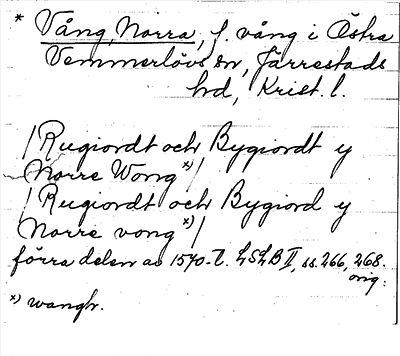 * Vång, Norra, f. vång i Östra
Vemmerlövs sn, Järrestads
hd, Krist. l.
/Rugiordt och Bygiordt y
Norre Wong x)/
/Rugiordt och Bygiord y
Norre vong x)/
förra delen av 1570-t. LSLB II, ss. 266, 268.
orig.
x) wangh.